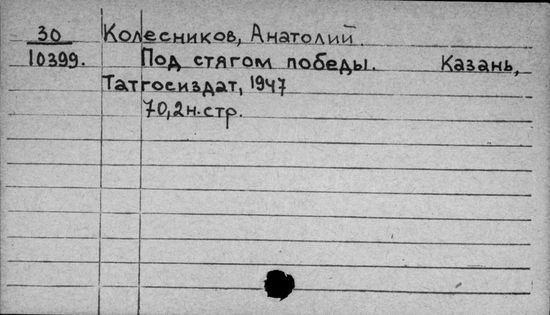 30 Колесников, Анатолий.
10399. Под стягом победы. Казань,
Татгосиздат, 1947
70,2н.стр.